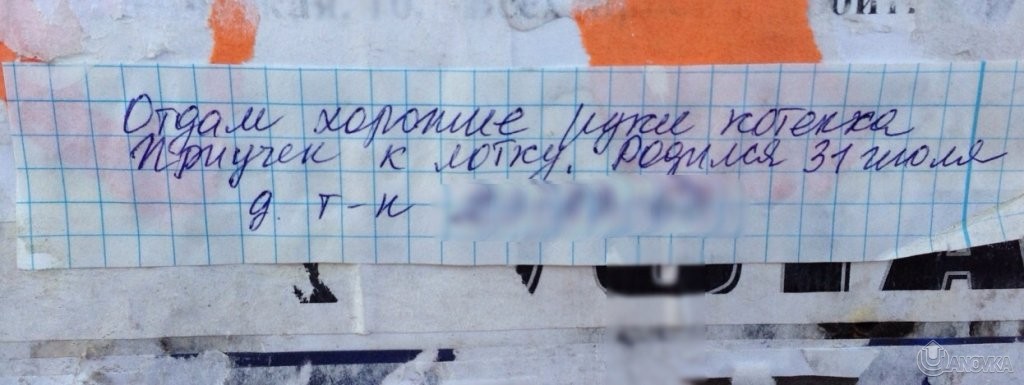 Отдам хорошие руки котенка
Приучен к лотку. Родился 31 июля
д. т-н
UANOVKA